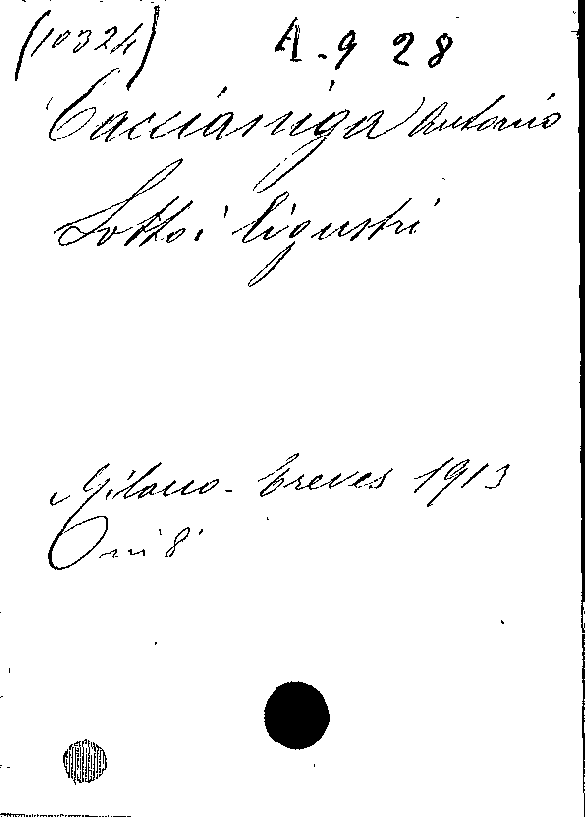 (10324) A. 9 28
Caccianiga Antonio
Sotto i ligustri
Milano - Treves 1913
In 8°